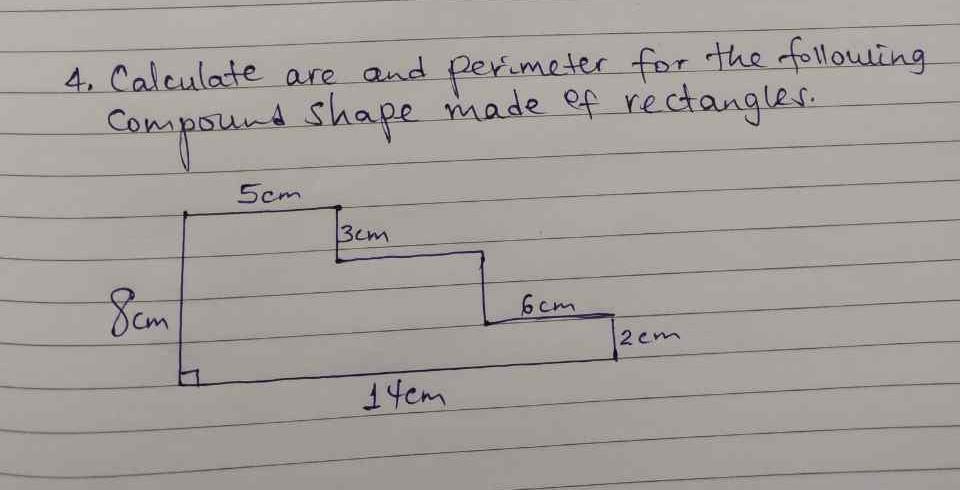 4. Calculate are and perimeter for the following
Compound shape made of rectangles.
5cm
3cm
8cm
6cm
2cm
14cm